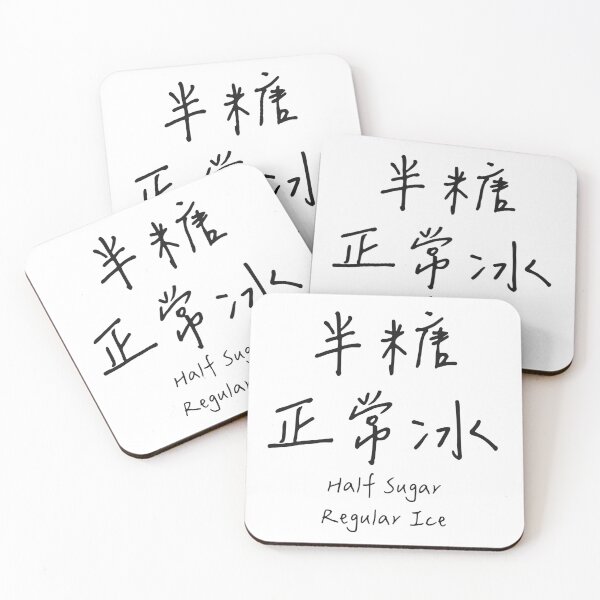 半糖
正常冰
半糖
正常冰
半糖
正常冰
Half Sug
Regular
半糖
正常冰
Half Sugar
Regular Ice